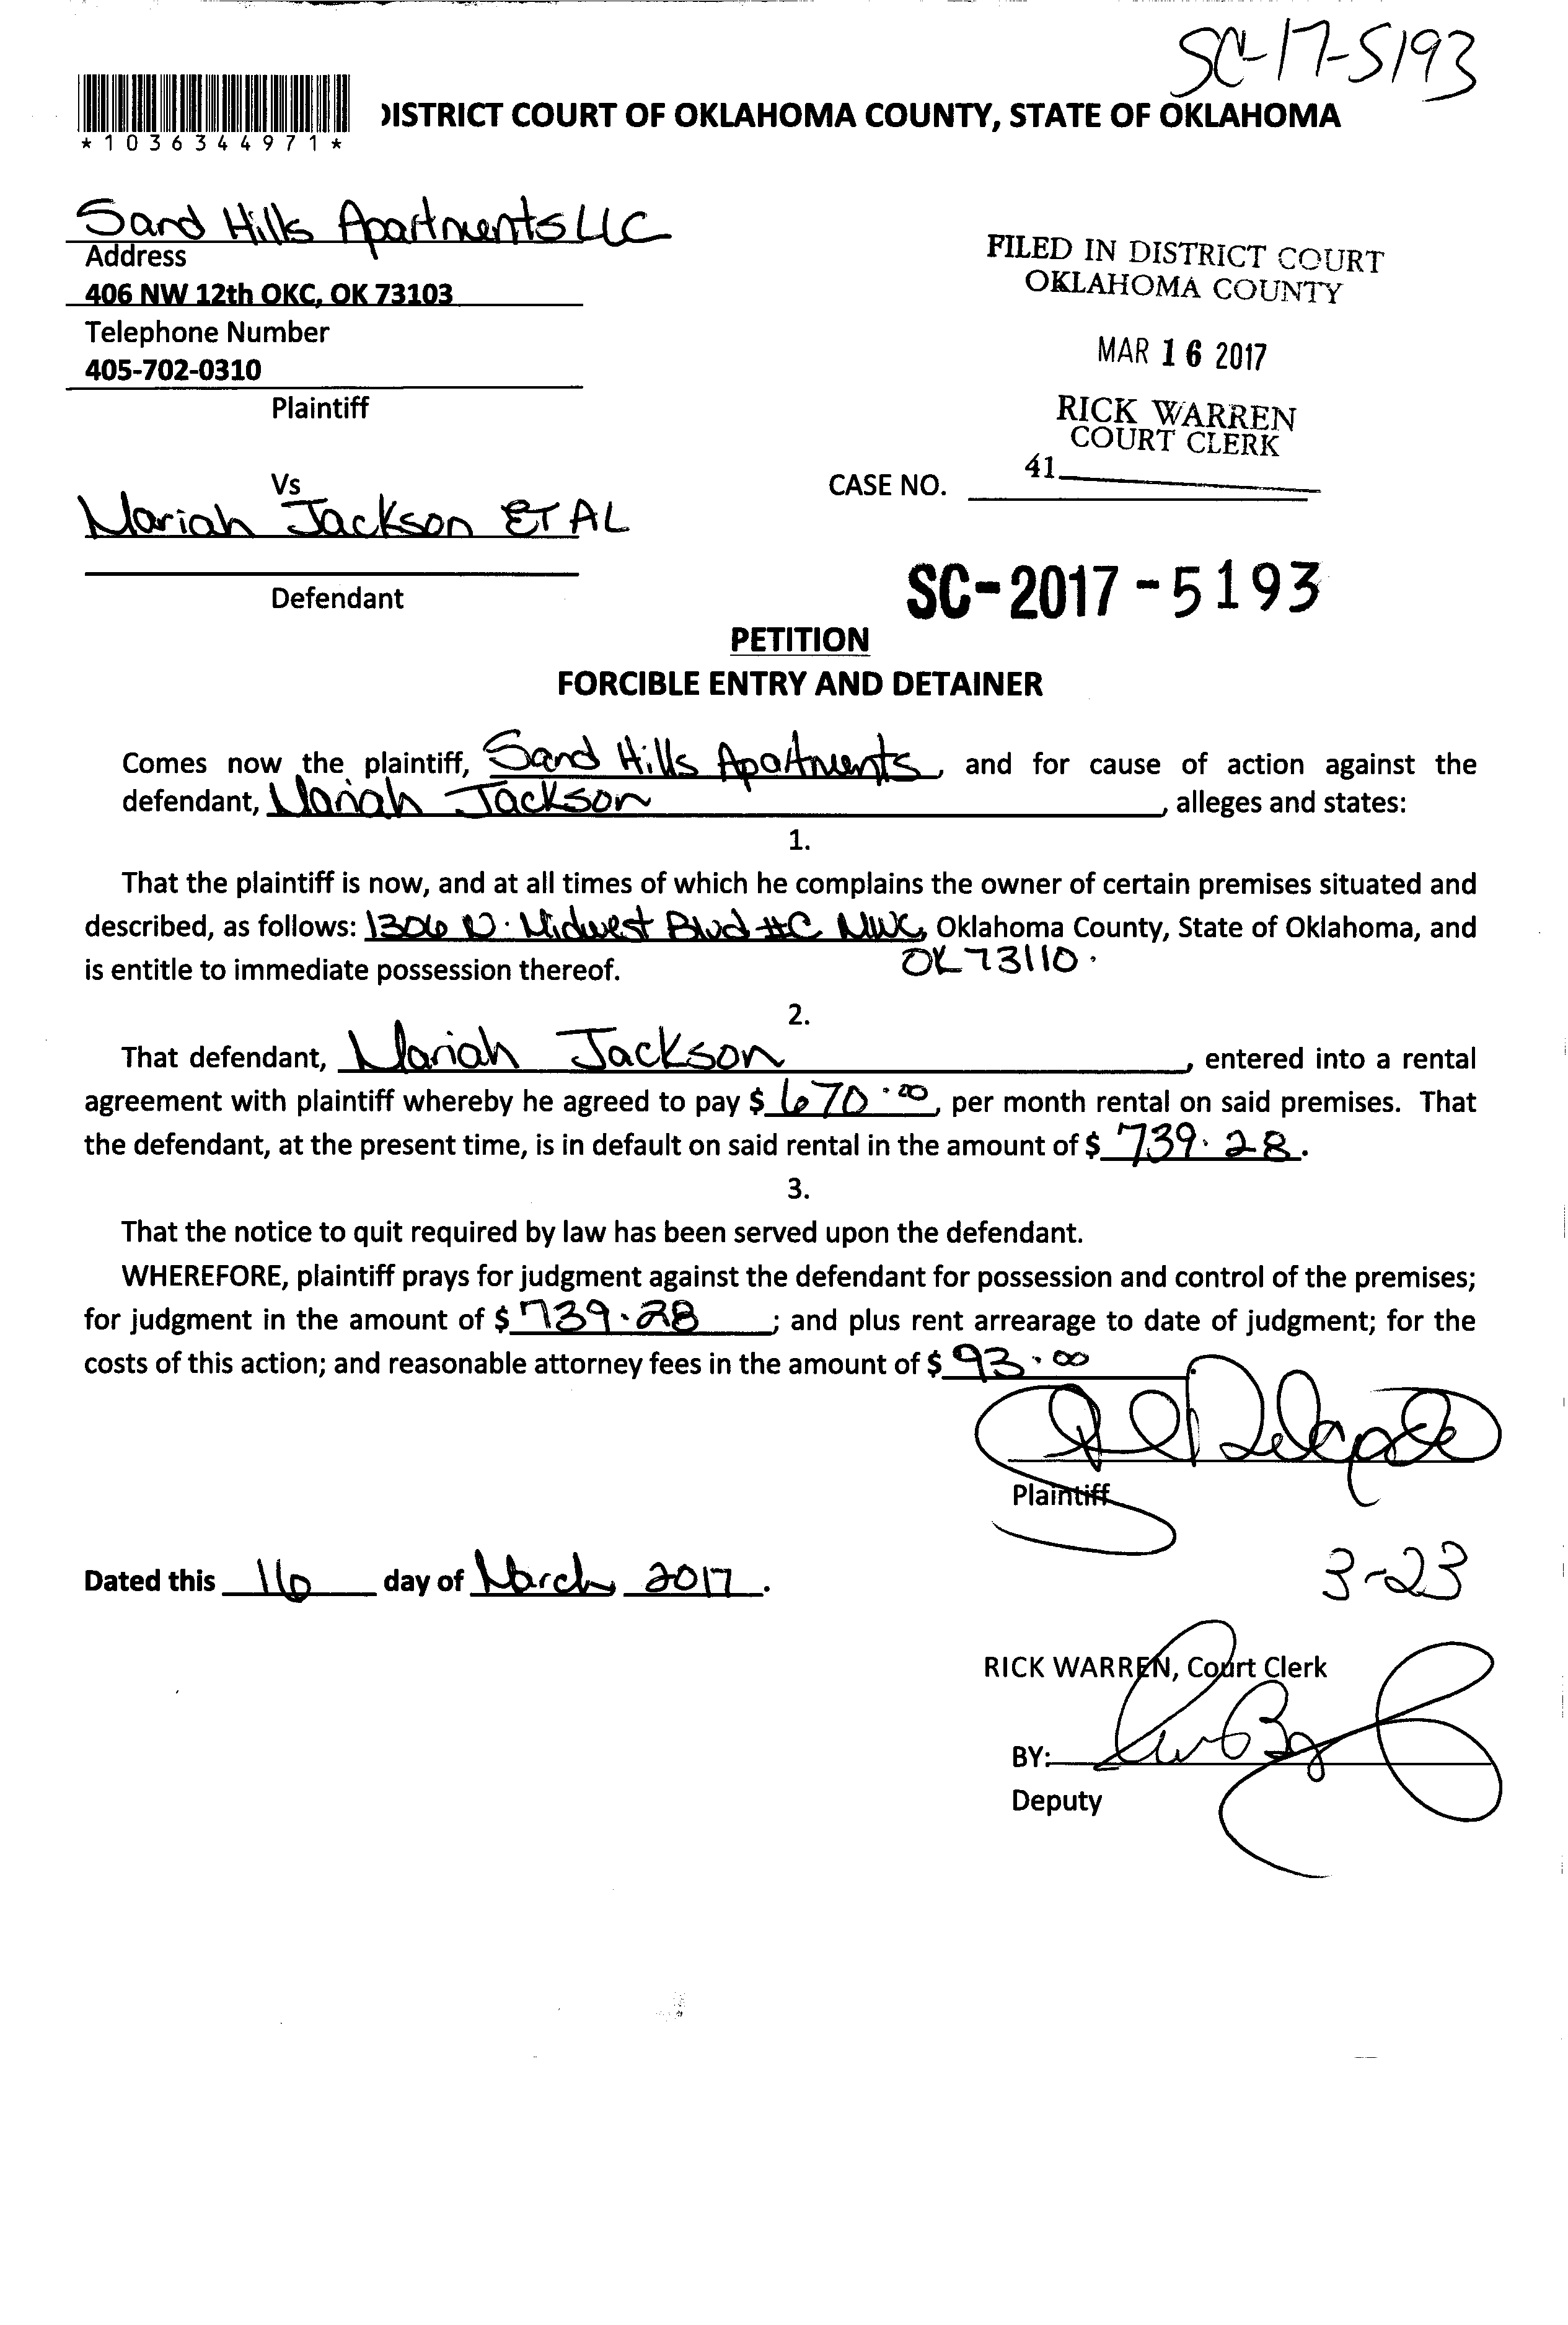 SC-17-5193
DISTRICT COURT OF OKLAHOMA COUNTY, STATE OF OKLAHOMA
*1036344971*
Sand Hills Apartments LLC
Address
406 NW 12th OKC, OK 73103
Telephone Number
405-702-0310
Plaintiff
FILED IN DISTRICT COURT
OKLAHOMA COUNTY
MAR 16 2017
RICK WARREN
COURT CLERK
41
Vs
CASE NO.
Mariah Jackson ET AL
Defendant
SC-2017-5193
PETITION
FORCIBLE ENTRY AND DETAINER
Comes now the plaintiff, Sand Hills Apartments, and for cause of action against the
defendant, Mariah Jackson, alleges and states:
1.
That the plaintiff is now, and at all times of which he complains the owner of certain premises situated and
described, as follows: 1306 N. Midwest Blvd #C MWC, Oklahoma County, State of Oklahoma, and
is entitle to immediate possession thereof. OK 73110.
2.
That defendant, Mariah Jackson, entered into a rental
agreement with plaintiff whereby he agreed to pay $ 670.00, per month rental on said premises. That
the defendant, at the present time, is in default on said rental in the amount of $ 739.28.
3.
That the notice to quit required by law has been served upon the defendant.
WHEREFORE, plaintiff prays for judgment against the defendant for possession and control of the premises;
for judgment in the amount of $ 739.28; and plus rent arrearage to date of judgment; for the
costs of this action; and reasonable attorney fees in the amount of $ 93.00
Plaintiff
Dated this 16 day of March 2017.
3-23
RICK WARREN, Court Clerk
BY:
Deputy